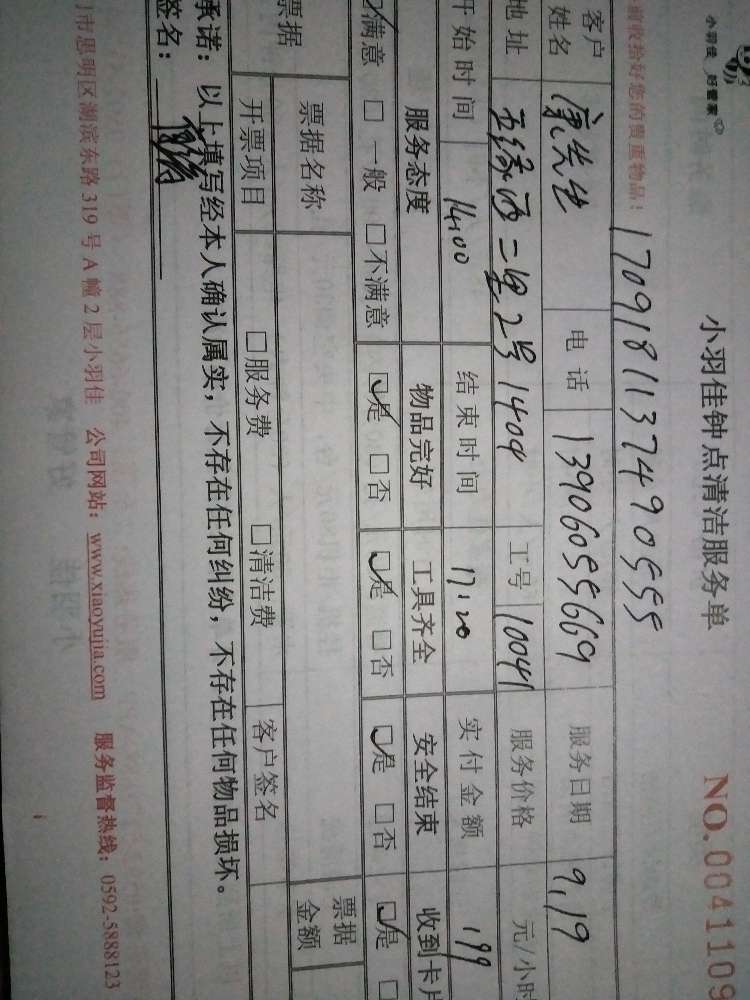 小羽佳 好管家
小羽佳钟点清洁服务单
NO.0041109
前收拾好您的贵重物品! 1709181137490555
客户姓名 康先生 电话 13906055669 服务日期 9.19
地址 五缘西二里2号1404 工号 10041 服务价格 元/小时
开始时间 14:00 结束时间 17:20 实付金额 199
服务态度 物品完好 工具齐全 安全结束 收到卡片
☑满意 □一般 □不满意 ☑是 □否 ☑是 □否 ☑是 □否 ☑是 □
票据 票据名称 票据金额
开票项目 □服务费 □清洁费 客户签名
承诺：以上填写经本人确认属实，不存在任何纠纷，不存在任何物品损坏。
签名：
门市思明区湖滨东路319号A幢2层小羽佳 公司网站：www.xiaoyujia.com 服务监督热线：0592-5888123